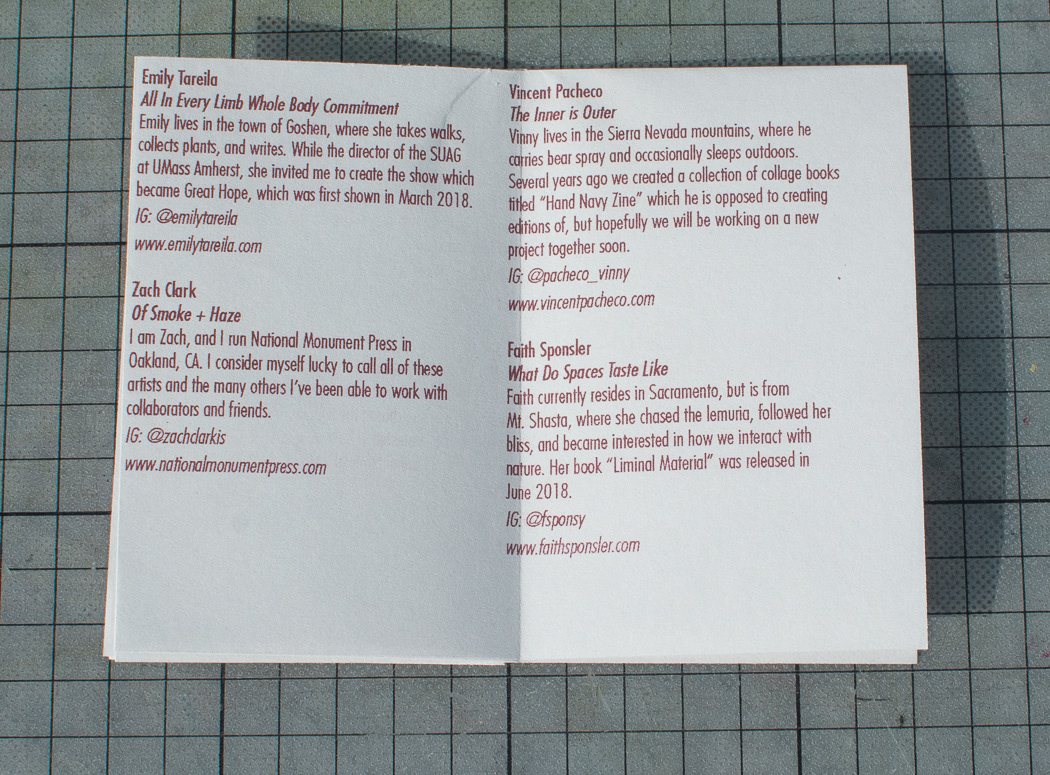 Emily Tareila
All In Every Limb Whole Body Commitment
Emily lives in the town of Goshen, where she takes walks,
collects plants, and writes. While the director of the SUAG
at UMass Amherst, she invited me to create the show which
became Great Hope, which was first shown in March 2018.
IG: @emilytareila
www.emilytareila.com
Zach Clark
Of Smoke + Haze
I am Zach, and I run National Monument Press in
Oakland, CA. I consider myself lucky to call all of these
artists and the many others I've been able to work with
collaborators and friends.
IG: @zachclarkis
www.nationalmonumentpress.com
Vincent Pacheco
The Inner is Outer
Vinny lives in the Sierra Nevada mountains, where he
carries bear spray and occasionally sleeps outdoors.
Several years ago we created a collection of collage books
titled “Hand Navy Zine” which he is opposed to creating
editions of, but hopefully we will be working on a new
project together soon.
IG: @pacheco_vinny
www.vincentpacheco.com
Faith Sponsler
What Do Spaces Taste Like
Faith currently resides in Sacramento, but is from
Mt. Shasta, where she chased the lemuria, followed her
bliss, and became interested in how we interact with
nature. Her book “Liminal Material” was released in
June 2018.
IG: @fsponsy
www.faithsponsler.com